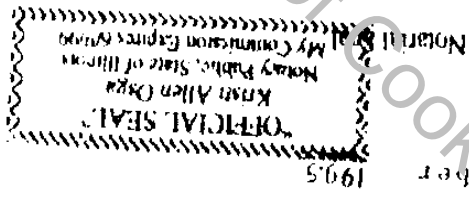 ber 1995
"OFFICIAL SEAL"
Kristi Allen Osga
Notary Public, State of Illinois
My Commission Expires
Notarial Seal
of Cook